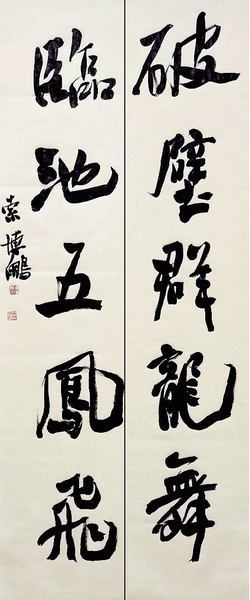 破壁群龍舞
臨池五鳳飛
索博鵬